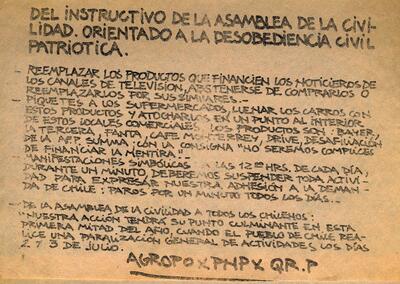 DEL INSTRUCTIVO DE LA ASAMBLEA DE LA CIVI-
LIDAD. ORIENTADO A LA DESOBEDIENCIA CIVIL
PATRIOTICA.
- REEMPLAZAR LOS PRODUCTOS QUE FINANCIEN LOS NOTICIEROS DE
LOS CANALES DE TELEVISION, ABSTENERSE DE COMPRARLOS O
REEMPLAZARLOS POR SUS SIMILARES...
- PIQUETES A LOS SUPERMERCADOS, LLENAR LOS CARROS CON
ESTOS PRODUCTOS Y ATOCHARLOS EN UN PUNTO AL INTERIOR
DE ESTOS LOCALES COMERCIALES. LOS PRODUCTOS SON: BAYER,
LA TERCERA, FANTA, CAFE MONTERREY, DRIVE, DESAFILIACION
DE LA AFP SUMMA; CON LA CONSIGNA "NO SEREMOS COMPLICES
DE FINANCIAR LA MENTIRA"
- MANIFESTACIONES SIMBOLICAS A LAS 12:00 HRS. DE CADA DIA,
DURANTE UN MINUTO, DEBEREMOS SUSPENDER TODA ACTIVI-
DAD PARA EXPRESAR NUESTRA ADHESIÓN A LA DEMAN-
DA DE CHILE: PAROS POR UN MINUTO TODOS LOS DIAS...
- DE LA ASAMBLEA DE LA CIVILIDAD A TODOS LOS CHILENOS:
"NUESTRA ACCIÓN TENDRÁ SU PUNTO CULMINANTE EN ESTA
PRIMERA MITAD DEL AÑO, CUANDO EL PUEBLO DE CHILE REA-
LICE UNA PARALIZACIÓN GENERAL DE ACTIVIDADES LOS DIAS
2 Y 3 DE JULIO.
AGROPO X PNP X QR.P